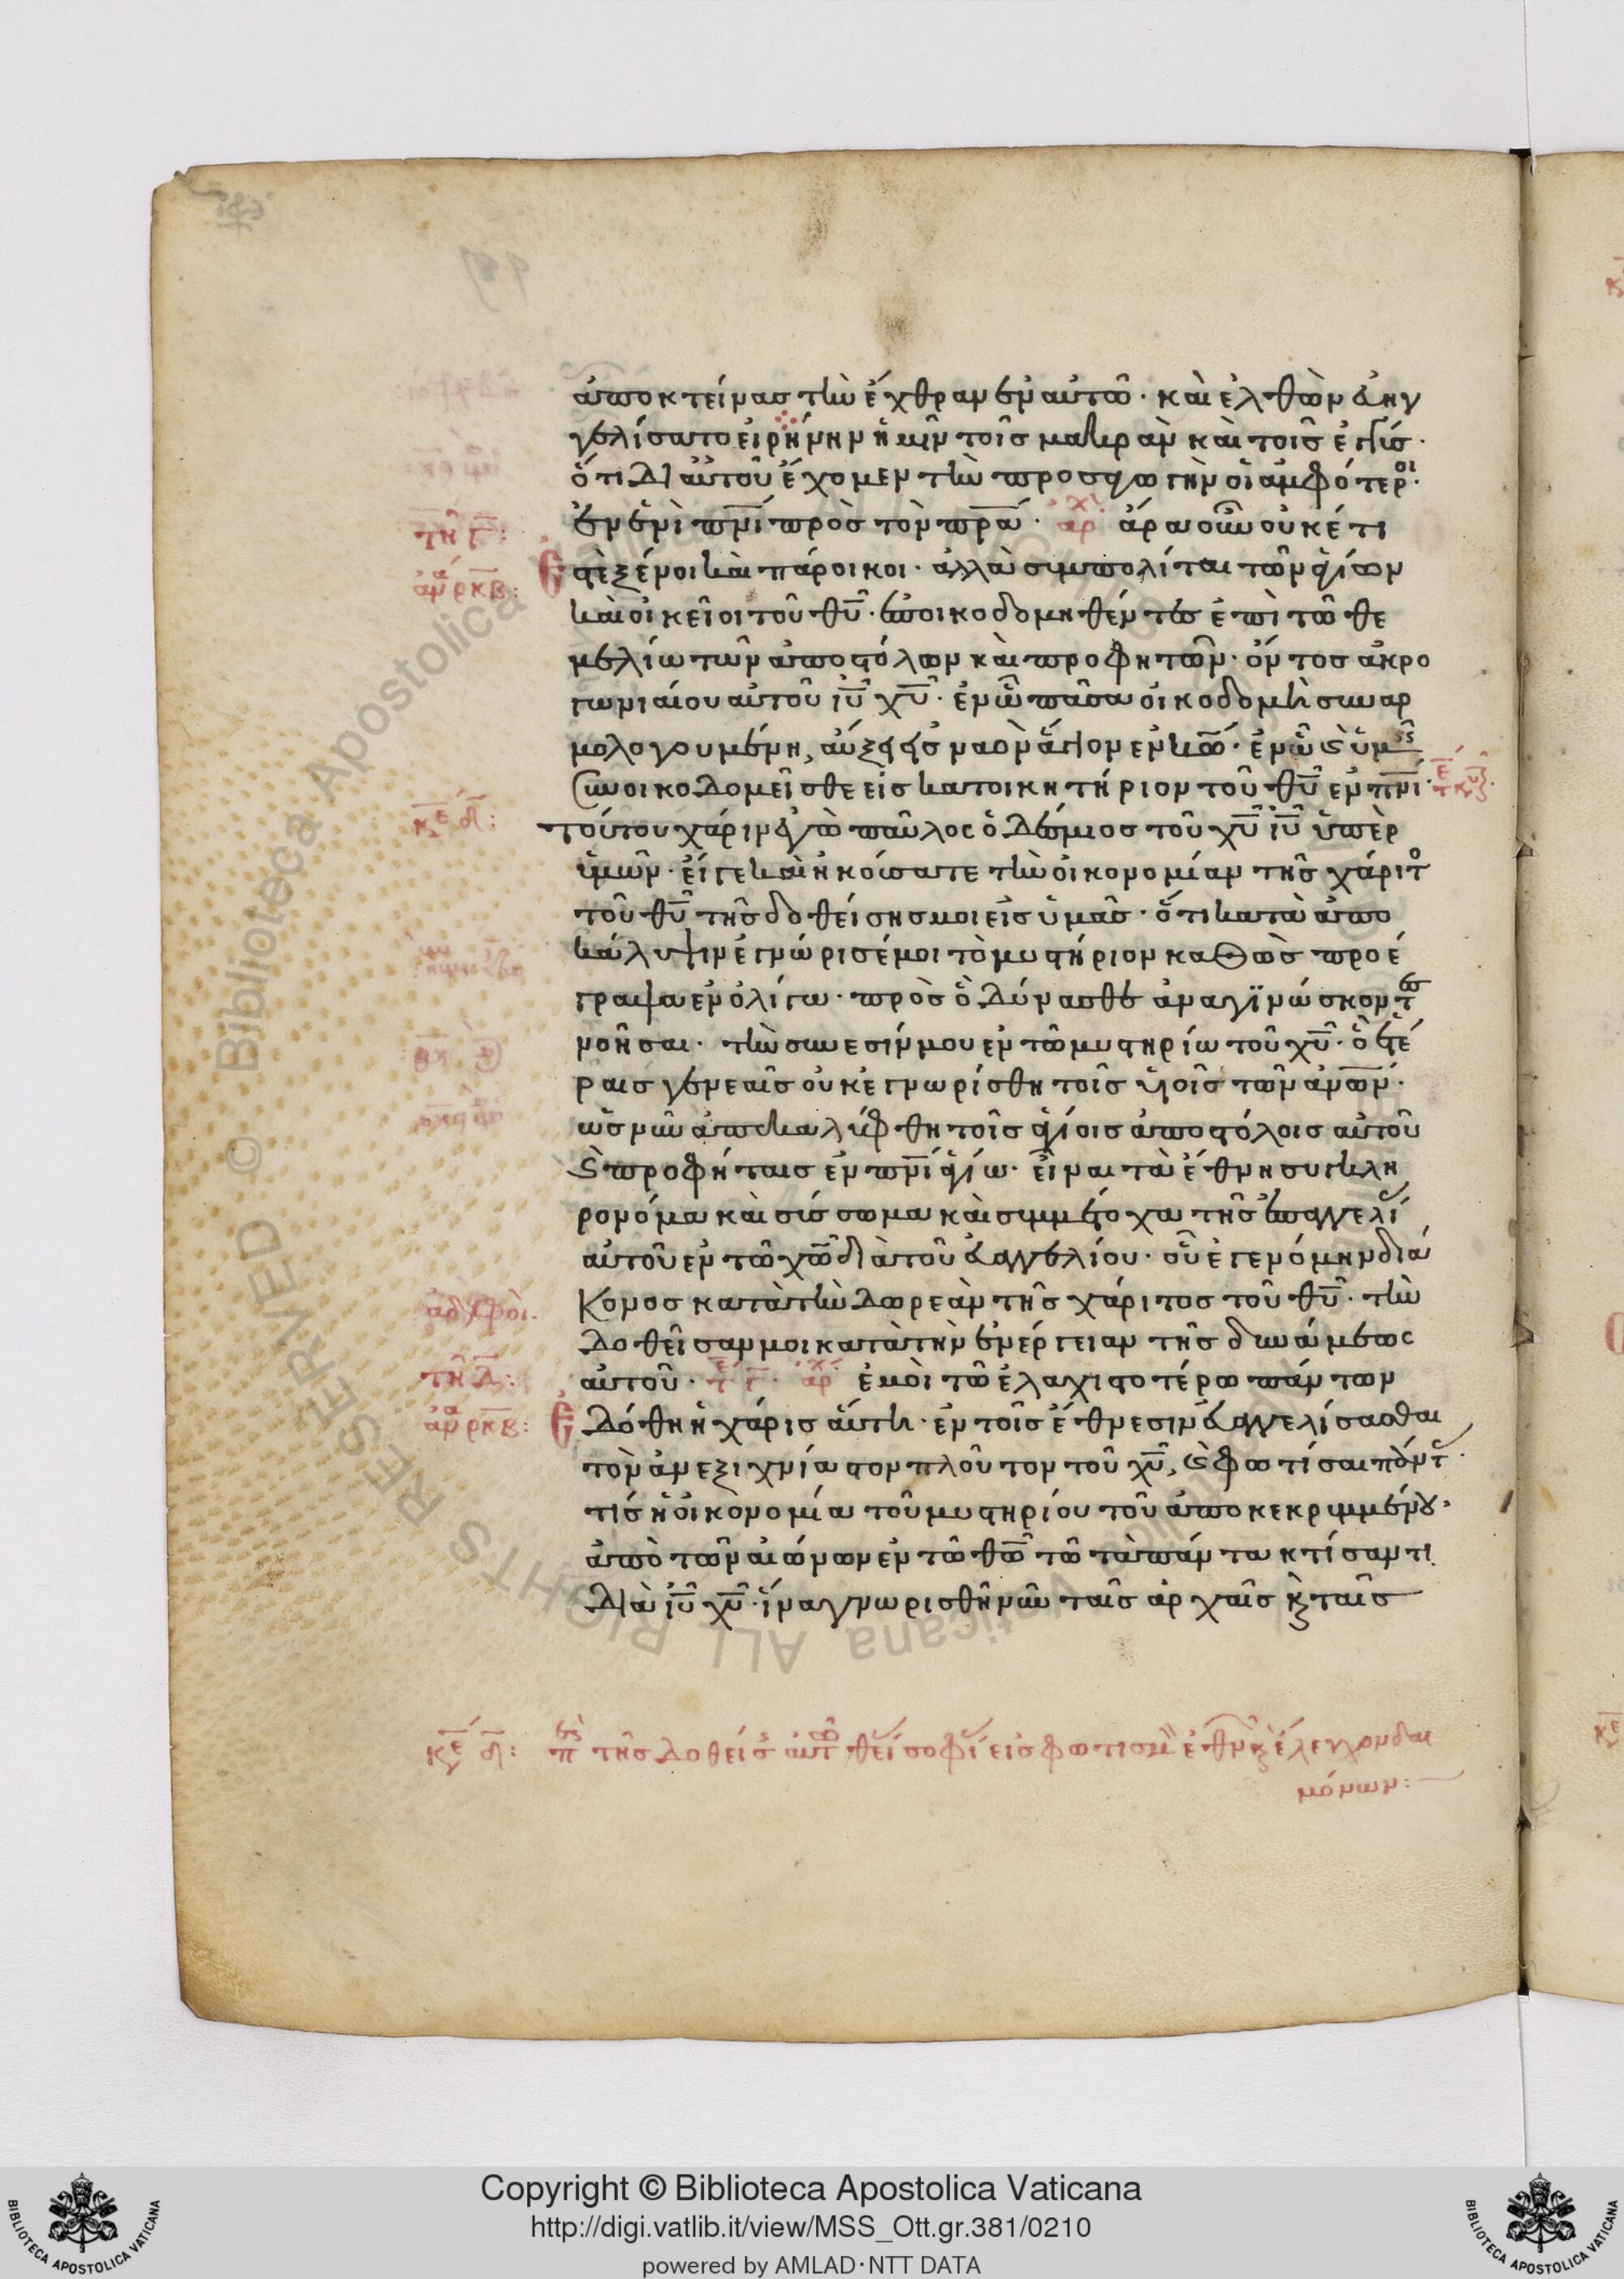 ἀποκτείνας τὴν ἔχθραν ἐν αὐτῶ· καὶ ἐλθὼν εὐηγ
γελίσατο εἰρήνην ἡμῖν τοῖς μακρὰν καὶ τοῖς ἐγγύς·
ὅτι δι αὐτοῦ ἔχομεν τὴν προσαγωγὴν οἱ ἀμφότεροι·
ἐν ἑνὶ πνι πρὸς τὸν πρα· ἀρχ ἄρα οὖν οὐκέτι
τῆ Γ:
ἐστὲ ξένοι καὶ πάροικοι· ἀλλὰ συμπολίται τῶν ἁγίων
καὶ οἰκεῖοι τοῦ θυ· ἐποικοδομηθέντες ἐπὶ τῶ θε
μελίω τῶν ἀποστόλων καὶ προφητῶν· ὄντος ἀκρο
γωνιαίου αὐτοῦ ιυ χυ· ἐν ὧ πᾶσα οἰκοδομὴ συναρ
μολογουμένη, αὔξει εἰς ναὸν ἅγιον ἐν κω· ἐν ὧ καὶ ὑμεῖς
συνοικοδομεῖσθε εἰς κατοικητήριον τοῦ θυ ἐν πνι·
κε δ: τούτου χάριν ἐγὼ παῦλος ὁ δέσμιος τοῦ χυ ιυ ὑπὲρ
ὑμῶν· εἴγε καὶ ἠκούσατε τὴν οἰκονομίαν τῆς χάριτο
τοῦ θυ τῆς δοθείσης μοι εἰς ὑμᾶς· ὅτι κατὰ ἀπο
κάλυψιν ἐγνώρισέ μοι τὸ μυστήριον καθὼς προέ
γραψα ἐν ὀλίγω· πρὸς ὃ δύνασθε ἀναγινώσκοντες
νοῆσαι· τὴν σύνεσίν μου ἐν τῶ μυστηρίω τοῦ χυ· ὃ ἑτέ
ραις γενεαῖς οὐκ ἐγνωρίσθη τοῖς υἱοῖς τῶν ανων·
ὡς νῦν ἀπεκαλύφθη τοῖς ἁγίοις ἀποστόλοις αὐτοῦ
καὶ προφήταις ἐν πνι ἁγίω· εἶναι τὰ ἔθνη συγκλη
ρονόμα καὶ σύσσωμα καὶ συμμέτοχα τῆς ἐπαγγελί
αὐτοῦ ἐν τῶ χω διὰ τοῦ εὐαγγελίου· οὗ ἐγενόμην διά
ἀδελφοὶ. κονος κατὰ τὴν δωρεὰν τῆς χάριτος τοῦ θυ· τὴν
δοθεῖσαν μοι κατὰ τὴν ἐνέργειαν τῆς δυνάμεως
τῆ Δ: αὐτοῦ· ἐμοὶ τῶ ἐλαχιστοτέρω πάντων
ἐδόθη ἡ χάρις αὕτη· ἐν τοῖς ἔθνεσιν εὐαγγελίσασθαι
τὸν ἀνεξιχνίαστον πλοῦτον τοῦ χυ, καὶ φωτίσαι πάντ
τίς ἡ οἰκονομία τοῦ μυστηρίου τοῦ ἀποκεκρυμμένου·
ἀπὸ τῶν αἰώνων ἐν τῶ θω τῶ τὰ πάντα κτίσαντι
διὰ ιυ χυ· ἵνα γνωρισθῆ νῦν ταῖς ἀρχαῖς καὶ ταῖς
κε δ: περὶ τῆς δοθείσ αὐτ θεί σοφί εἰς φωτισμ ἐθν καὶ ἔλεγχον δαι
μόνων:
Copyright © Biblioteca Apostolica Vaticana
http://digi.vatlib.it/view/MSS_Ott.gr.381/0210
powered by AMLAD·NTT DATA